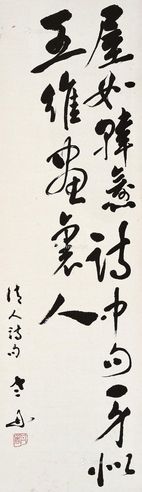 屋如韓愈詩中句身似
王維畫裏人
清人詩句